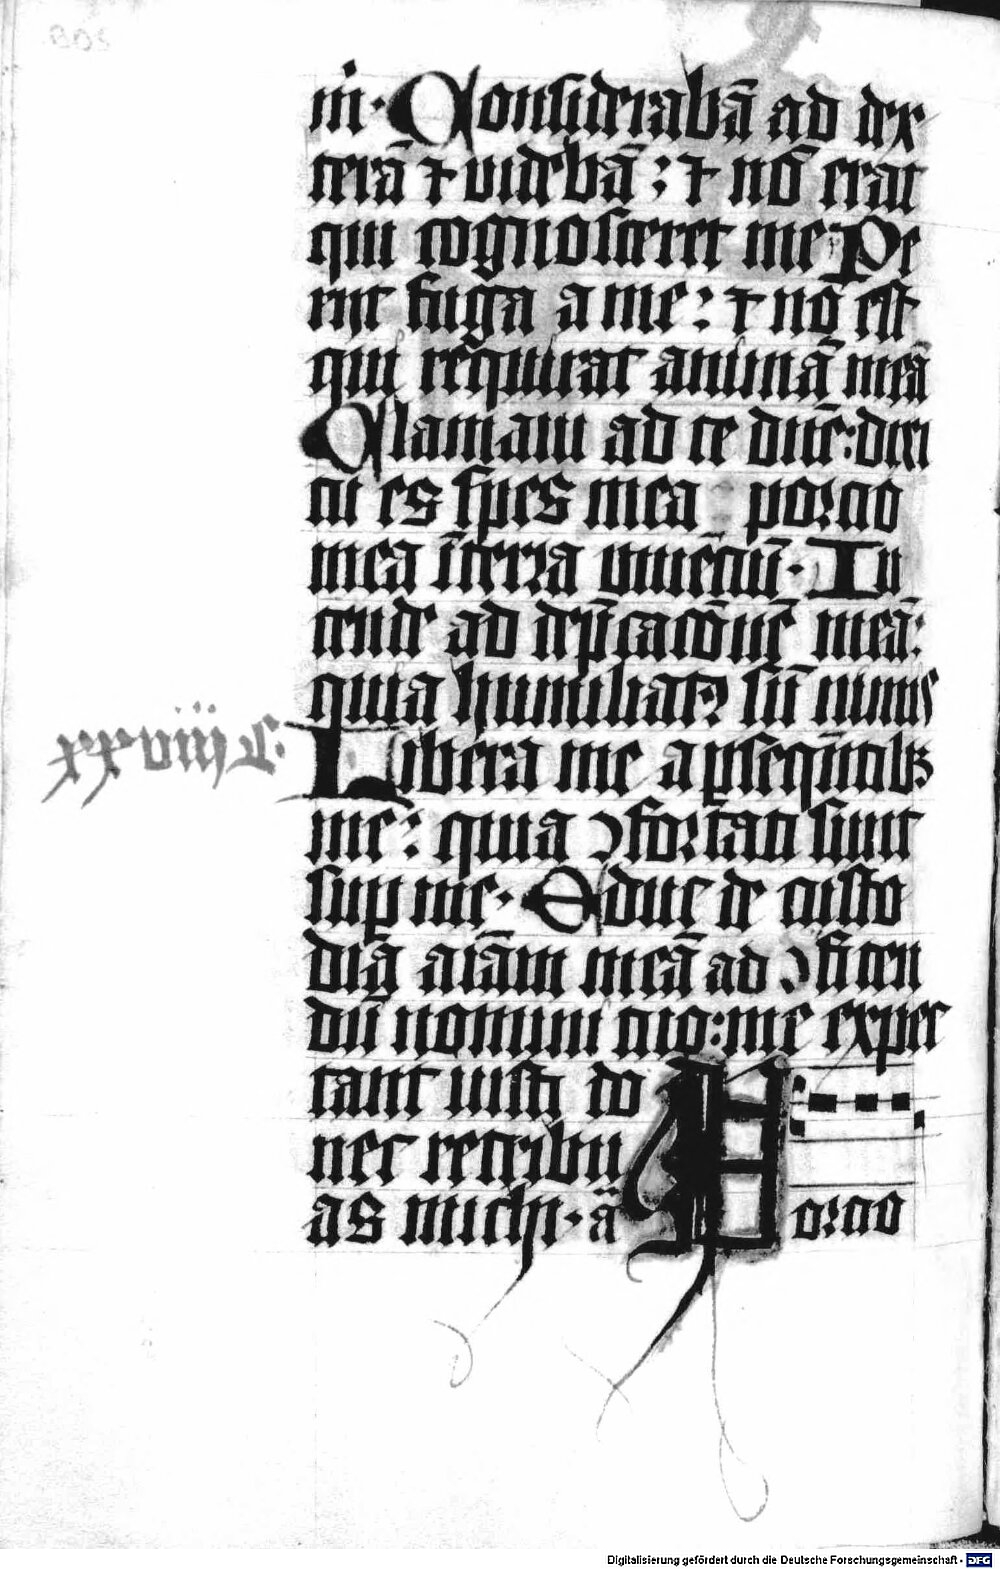 m̄· Considerabā ad dex
terā ⁊ videbā: ⁊ nō erat
qui cognosceret me Pe
rijt fuga a me: ⁊ nō est
qui reqͥrat animā meā
Clamaui ad te dn̄e: dixi
tu es spes mea porcio
mea ī terra viuēciū· In
tende ad dep̄cacōnē meā:
quia humiliatꝰ sū nimis
xxviiij c. Libera me a ꝑseqūtibꝫ
me: quia ꝯfortati sunt
suꝑ me· Educ de custo
dia aīam meā ad ꝯfiten
dū nomini tuo: me expec
tant iusti do
nec retribu
as michi· ā Porcio
Digitalisierung gefördert durch die Deutsche Forschungsgemeinschaft - DFG